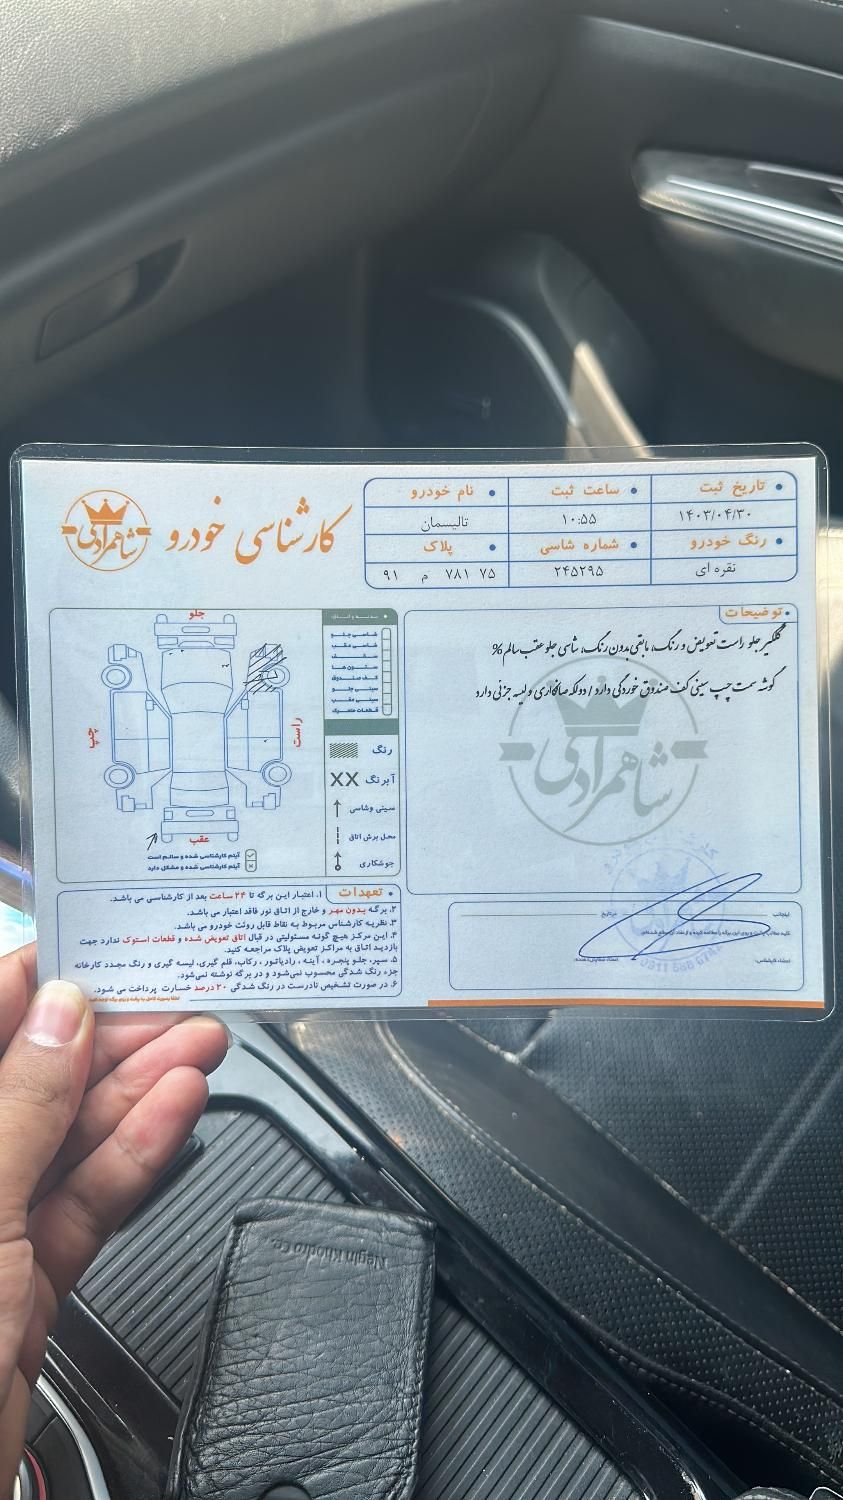 شاهمرادی
کارشناسی خودرو
• تاریخ ثبت
• ساعت ثبت
• نام خودرو
۱۴۰۳/۰۴/۳۰
۱۰:۵۵
تالیسمان
• رنگ خودرو
• شماره شاسی
• پلاک
نقره ای
۲۴۵۲۹۵
۹۱ م ۷۸۱ ۷۵
• توضیحات
گلگیر جلو راست تعویض و رنگ، مابقی بدون رنگ، شاسی جلو عقب سالم %
گوشه سمت چپ سینی کف صندوق خوردگی دارد / دو لکه صافکاری و لیسه جزئی دارد
شاهمرادی
جلو
راست
چپ
عقب
آیتم کارشناسی شده و سالم است
آیتم کارشناسی شده و مشکل دارد
شاسی جلو
شاسی عقب
سقف
ستون ها
کف صندوق
سینی جلو
سینی عقب
قطعات متحرک
رنگ
XX آبرنگ
سینی وشاسی
محل برش اتاق
جوشکاری
• تعهدات
۱. اعتبار این برگه تا ۲۴ ساعت بعد از کارشناسی می باشد.
۲. برگه بدون مهر و خارج از اتاق نور فاقد اعتبار می باشد.
۳. نظریه کارشناس مربوط به نقاط قابل روئت خودرو می باشد.
۴. این مرکز هیچ گونه مسئولیتی در قبال اتاق تعویض شده و قطعات استوک ندارد جهت
بازدید اتاق به مراکز تعویض پلاک مراجعه کنید.
۵. سپر، جلو پنجره ، آینه ، رادیاتور ، رکاب، قلم گیری، لیسه گیری و رنگ مجدد کارخانه
جزء رنگ شدگی محسوب نمی‌شود و در برگه نوشته نمی‌شود.
۶. در صورت تشخیص نادرست در رنگ شدگی ۲۰ درصد خسارت پرداخت می شود.
اینجانب
در تاریخ
امضاء کارشناس:
Negin Khodro Co.